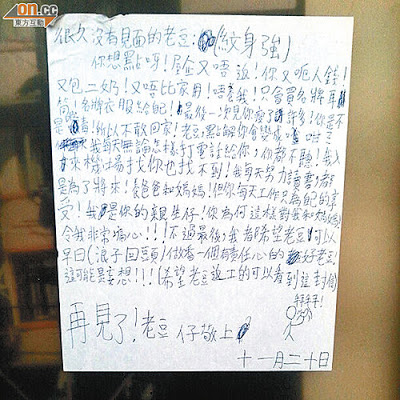 on.cc
東方互動
很久沒有見面的老豆：(紋身強)
你想點呀！屋企又唔返！你又呃人錢！
又包二奶！又唔比家用！唔養我！只會買名牌
名牌衣服給自己！最後一次見你瘦了許多！你是不
是 所以不敢回家！老豆點解你會變成
我每天無論怎樣打電話給你！你都不聽！我入
來機場找你也找不到！我每天努力讀書都
是為了將來！養爸爸和媽媽！但你每天工作只為自己的享
受！我是你的親生仔！你為何這樣對我和媽媽！
令我非常痛心！！！不過最後，我都希望老豆可以
早日(浪子回頭)做番一個有責任心的好老豆！
這可能是妄想！！！(希望老豆返工的可以看到這封信)
拜拜！
再見了！老豆 仔敬上
十一月二十日